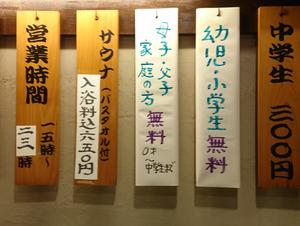 中学生
三〇〇円
幼児・小学生
無料
母子・父子
家庭の方
無料
0才
〜中学生まで
サウナ(バスタオル付)
入浴料込六五〇円
営業時間
一五時〜
二三時